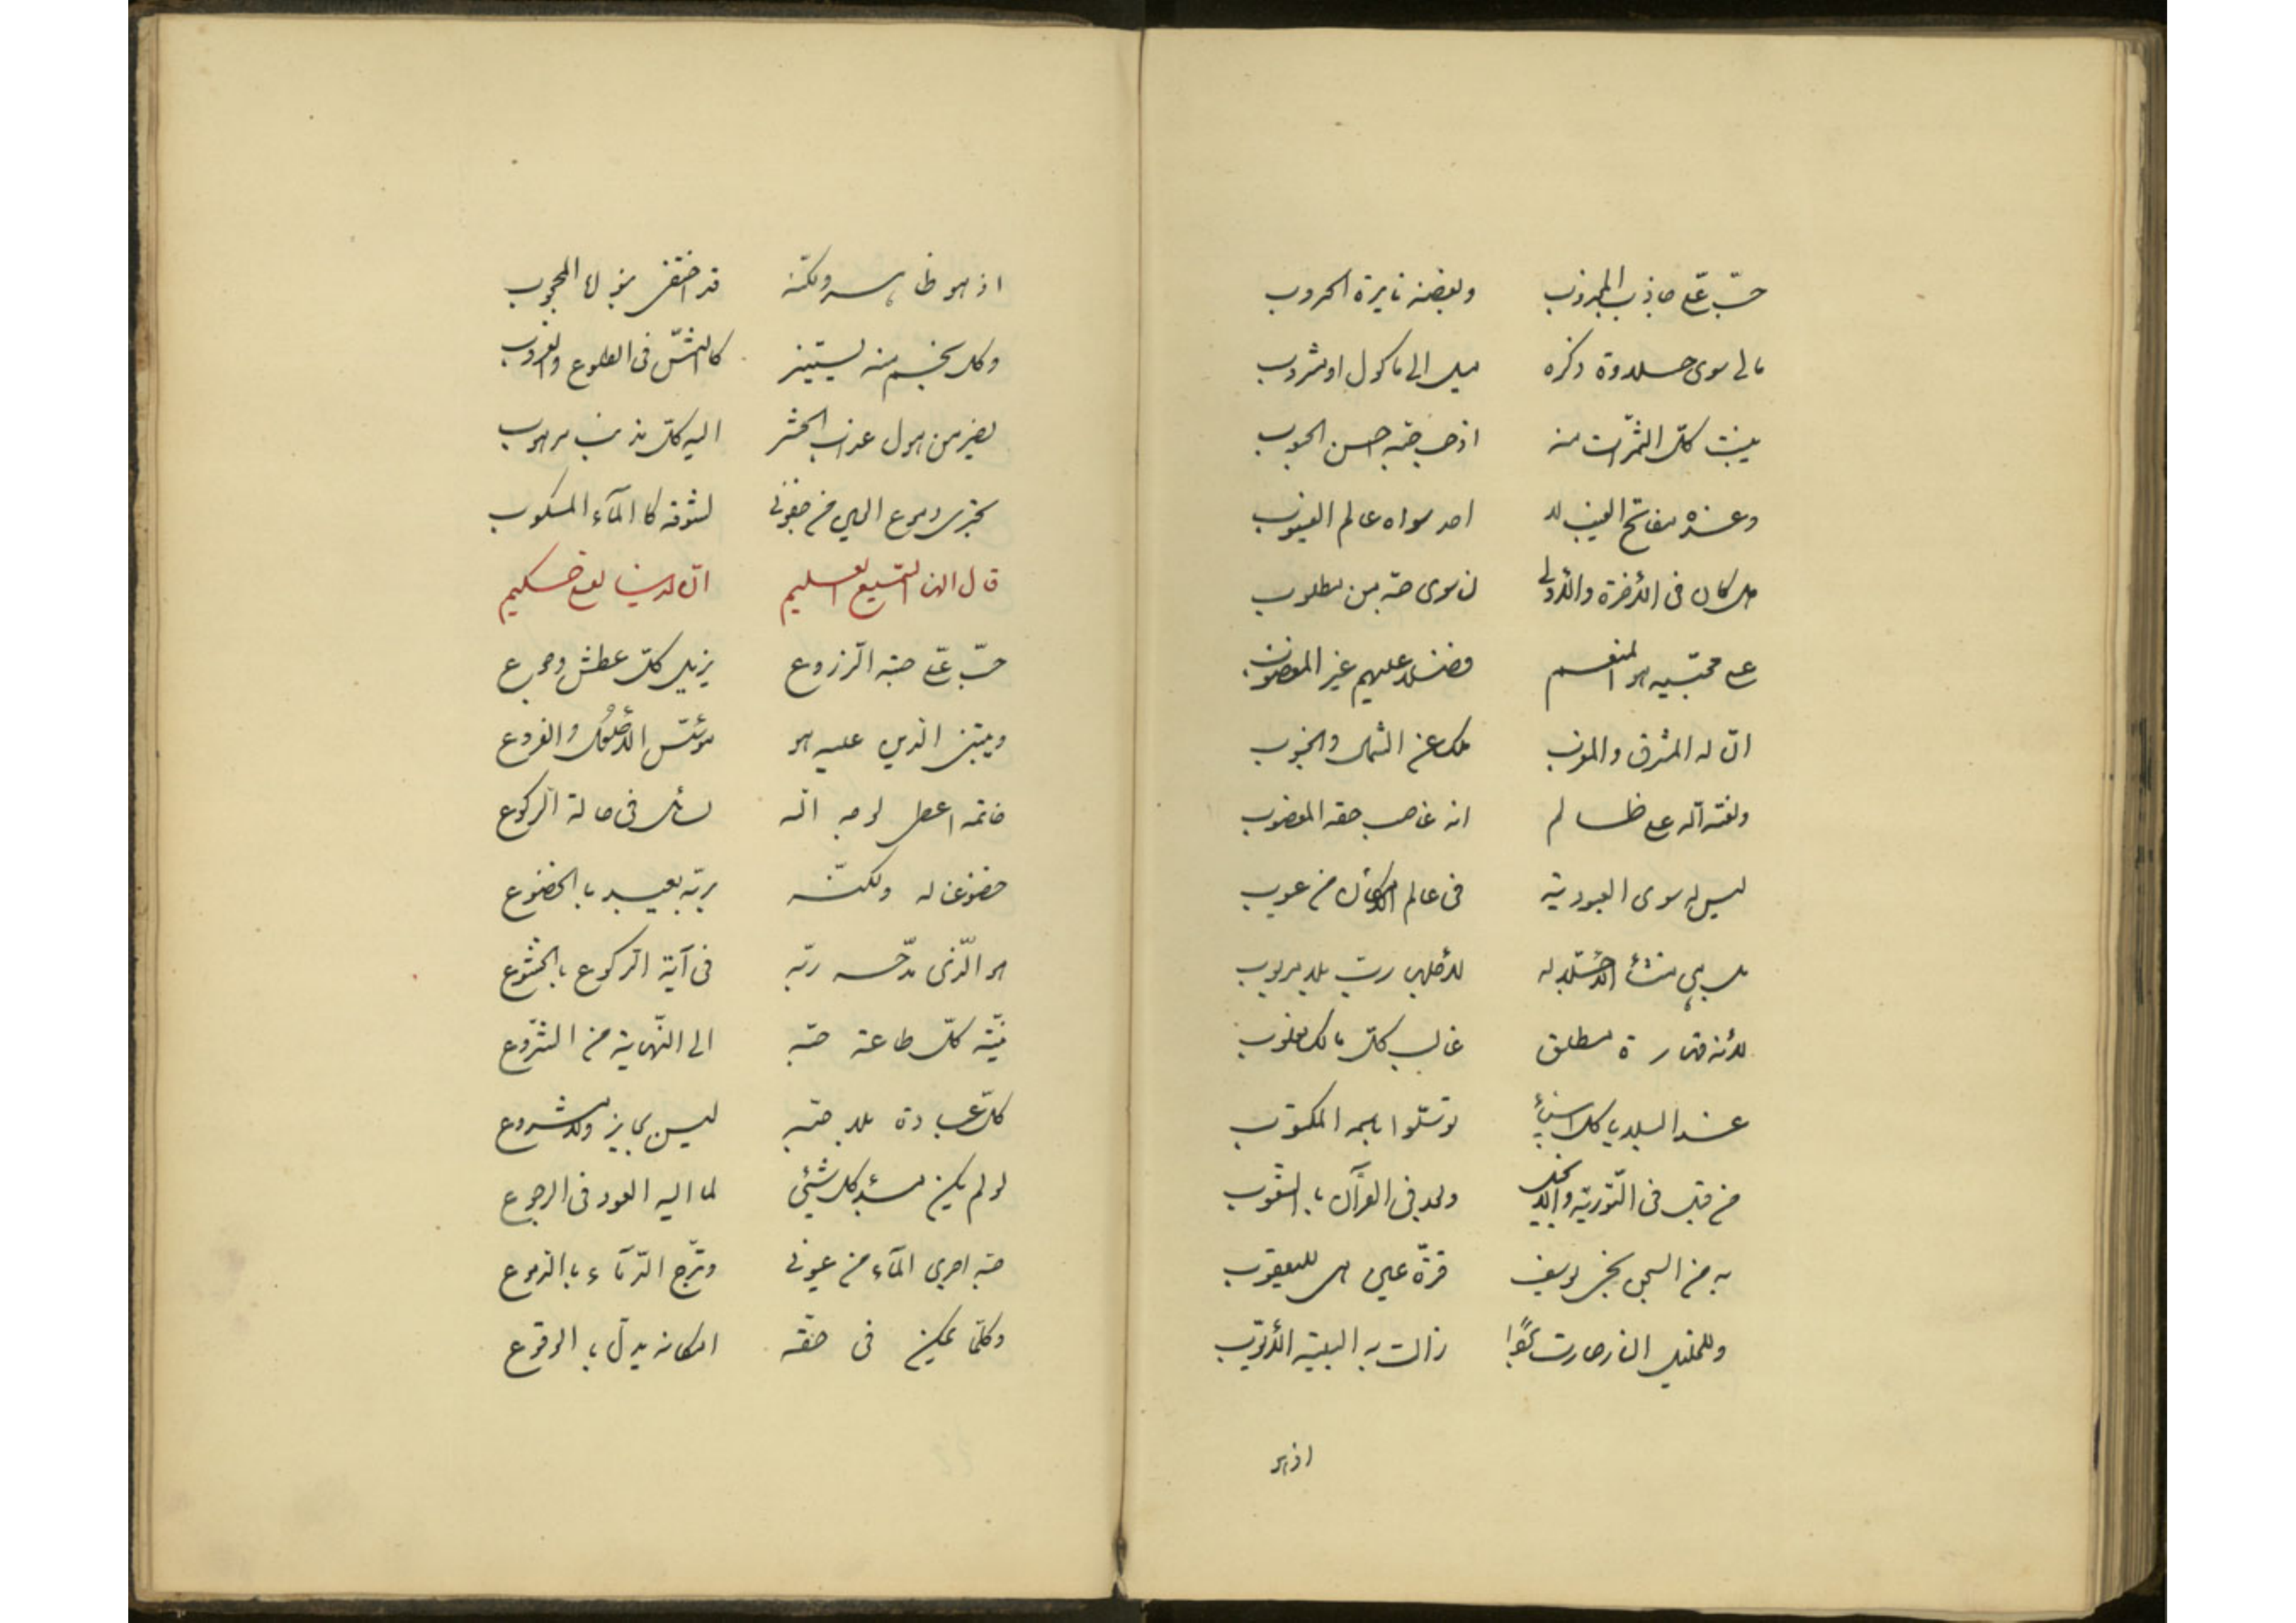 حبّ علىّ جاذب المجذوب وبغضه نايرة الحروب
مالى سوى حلاوة ذكره ميل الى ماكول او مشروب
ينبت كلّ الثمرات منه اذ حبّ حبّه احسن الحبوب
وعنده مفاتح الغيب لا احد سواه عالم الغيوب
هل كان فى الأخرة والأولى لى سوى حبّه من مطلوب
على محبّيه هو المنعم فضلا عليهم غير المغضوب
انّ له المشرق والمغرب ملك عن الشمال والجنوب
ولعنة اللّه على ظالم انه غاصب حقه المغضوب
ليس له سوى العبودية فى عالم الأمكان من عيوب
بل هى منشأ الأستيلا له لأهلها ربّ بلا مربوب
لأنه قدرة مطلق غالب كلّ مالك مغلوب
عند البلايا كل انبيآء توسّلوا باسمه المكتوب
من قبل فى التّورية والأنجيل ولا فى القرآن
به من السجن نجى يوسف قرّة عين هى لليعقوب
وللخليل النار صارت بردا زالت به البلية الأيّوب
اذ هو
اذ هو ظاهر ولكنه قد اختفى بنوره المحجوب
وكل نجم منه يستنير كالشّمس فى الطلوع والغروب
يفرّ من هول عذاب الحشر اليه كلّ مذنب مرهوب
تجرى دموع العين من جفونى لشوقه كالمآء المسكوب
قال السميع العليم انّه لدينا لعلى حكيم
حبّ علىّ حبّه الزروع يزيل كلّ عطش وجوع
ويبتنى الدين عليه هو مؤسّس الأصول والفروع
خاتمه اعطى لوجه اللّه لسائل فى حالة الركوع
خضوعنا له ولكنّه بربّه يعبد بالخضوع
هو الّذى مدحه ربّه فى آية الركوع بالخشوع
نيّة كلّ طاعة حبّه الى النّهاية من الشّروع
كلّ عبادة بلا حبّه ليس بجايز ولا مشروع
لو لم يكن مبدء كل شيئى لما اليه العود فى الرجوع
حبّه اجرى المآء من عيونى ومزّج الدّمآء بالدموع
وكلّما يمكن فى حقّه امكانه يدلّ بالوقوع